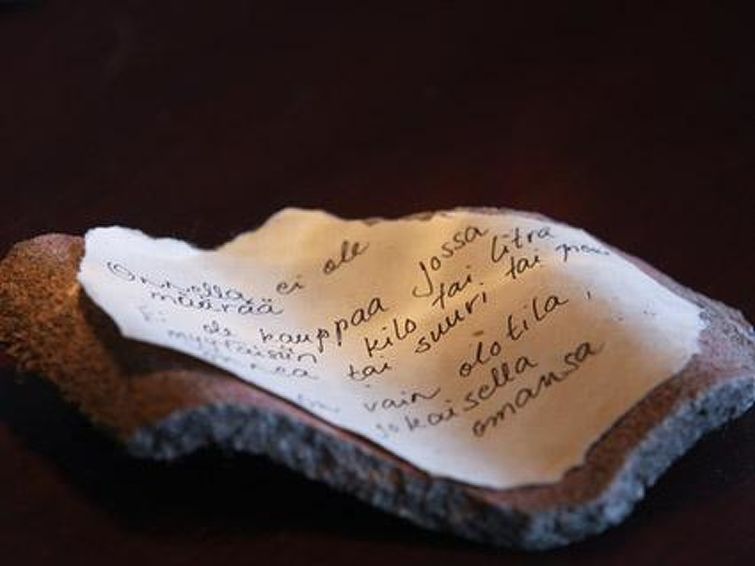 Onnella ei ole
määrää
Ei ole kauppaa jossa
myytäisiin kilo tai litra
onnea tai suuri tai pieni
on vain olotila,
jokaisella
omansa